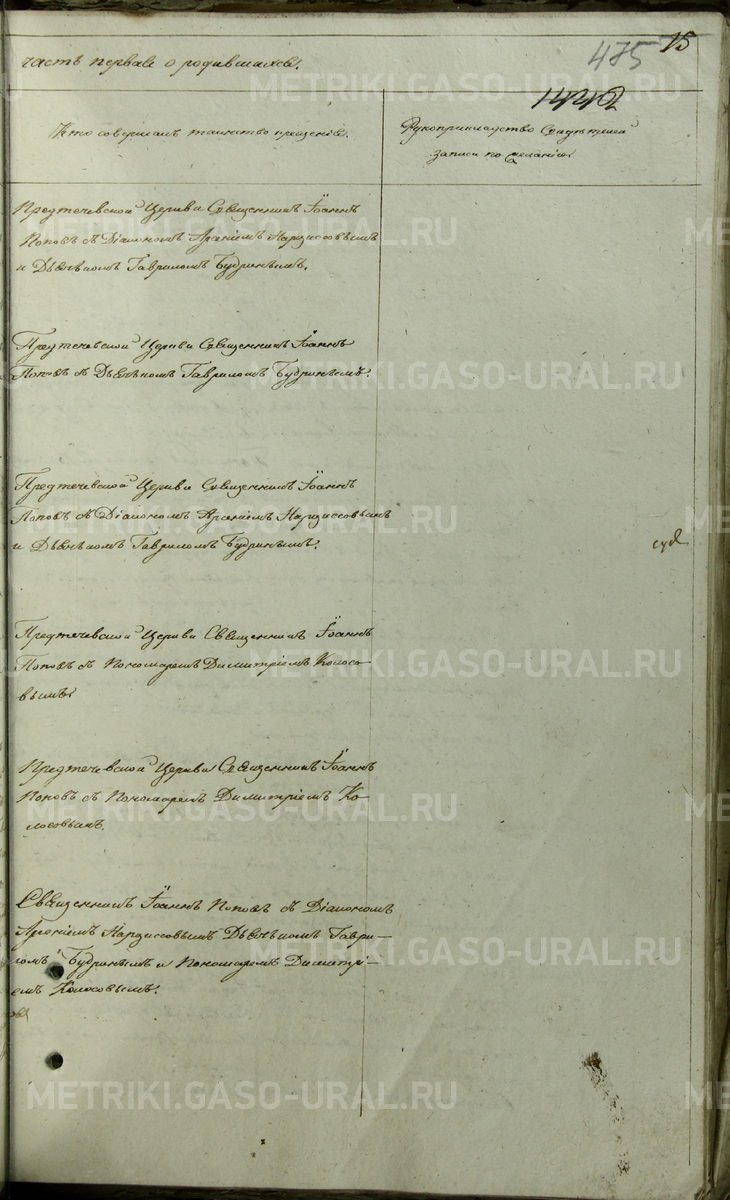 15
475
часть первая о родившихся.
Кто совершалъ таинство крещенія.
Рукоприкладство Свидѣтелей
записи по желанію
Предтечевской Церкви Священникъ Іоаннъ
Поповъ съ Діакономъ Арсеніемъ Нарциссовымъ
и Дьячкомъ Гавриломъ Будринымъ.
Предтечевской Церкви Священникъ Іоаннъ
Поповъ съ Дьячкомъ Гавриломъ Будринымъ.
Предтечевской Церкви Священникъ Іоаннъ
Поповъ съ Діакономъ Арсеніемъ Нарциссовымъ
и Дьячкомъ Гавриломъ Будринымъ.
Предтечевской Церкви Священникъ Іоаннъ
Поповъ съ Пономаремъ Димитріемъ Колосо-
вымъ
Предтечевской Церкви Священникъ Іоаннъ
Поповъ съ Пономаремъ Димитріемъ Ко-
лосовымъ.
Священникъ Іоаннъ Поповъ съ Діакономъ
Арсеніемъ Нарциссовымъ Дьячкомъ Гаври-
ломъ Будринымъ и Пономаремъ Димитрі-
емъ Колосовымъ.
METRIKI.GASO-URAL.RU